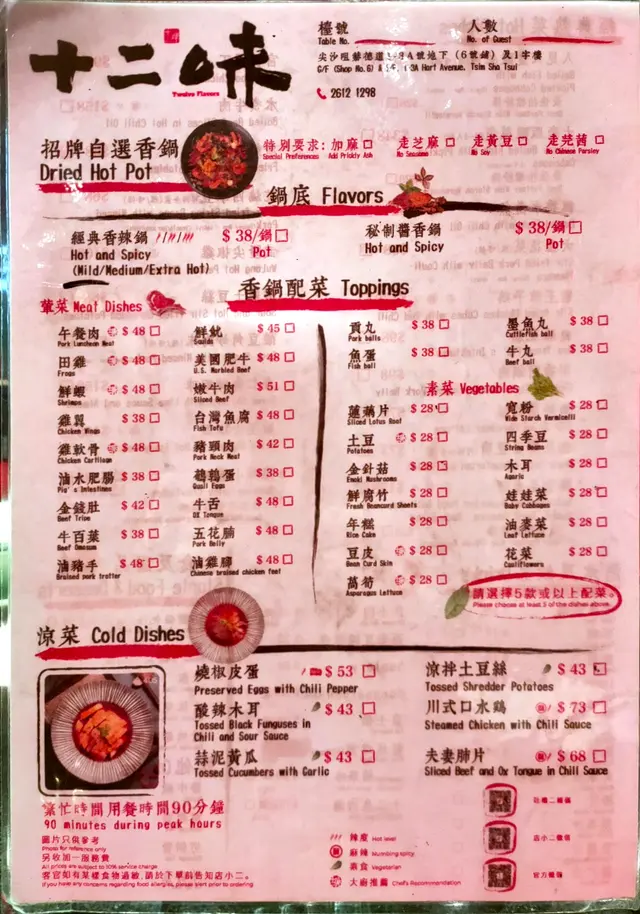 十二味
Twelve Flavors
檯號 人數
Table No. No. of Guest
尖沙咀赫德道1-3A號地下（6號鋪）及1字樓
G/F (Shop No.6) & 1/F, 1-3A Hart Avenue, Tsim Sha Tsui
2612 1298
招牌自選香鍋
Dried Hot Pot
特別要求: 加麻 走芝麻 走黃豆 走芫茜
Special Preferences Add Prickly Ash No Sesame No Soy No Chinese Parsley
鍋底 Flavors
經典香辣鍋 $ 38/鍋
Hot and Spicy Pot
(Mild/Medium/Extra Hot)
秘制醬香鍋 $ 38/鍋
Hot and Spicy Pot
香鍋配菜 Toppings
葷菜 Meat Dishes
午餐肉 $ 48
Pork Luncheon Meat
田雞 $ 48
Frogs
鮮蝦 $ 48
Shrimps
雞翼 $ 38
Chicken Wings
雞軟骨 $ 48
Chicken Cartilage
滷水肥腸 $ 38
Pig's Intestines
金錢肚 $ 42
Beef Tripe
牛百葉 $ 38
Beef Omasum
滷豬手 $ 48
Braised pork trotter
鮮魷 $ 45
Squids
美國肥牛 $ 48
U.S. Marbled Beef
嫩牛肉 $ 51
Sliced Beef
台灣魚腐 $ 48
Fish Tofu
豬頸肉 $ 42
Pork Neck Meat
鵪鶉蛋 $ 38
Quail Eggs
牛舌 $ 48
OX Tongue
五花腩 $ 48
Pork Belly
滷雞腳 $ 48
Chinese braised chicken feet
貢丸 $ 38
Pork balls
魚蛋 $ 38
Fish ball
墨魚丸 $ 38
Cuttlefish ball
牛丸 $ 38
Beef ball
素菜 Vegetables
蓮藕片 $ 28
Sliced Lotus Root
土豆 $ 28
Potatoes
金針菇 $ 28
Enoki Mushrooms
鮮腐竹 $ 28
Fresh Beancurd Sheets
年糕 $ 28
Rice Cake
豆皮 $ 28
Bean Curd Skin
萵筍 $ 28
Asparagus Lettuce
寬粉 $ 28
Wide Starch Vermicelli
四季豆 $ 28
String Beans
木耳 $ 28
Agaric
娃娃菜 $ 28
Baby Cabbages
油麥菜 $ 28
Leaf Lettuce
花菜 $ 28
Cauliflowers
請選擇5款或以上配菜。
Please choose at least 5 of the dishes above.
涼菜 Cold Dishes
燒椒皮蛋 $ 53
Preserved Eggs with Chili Pepper
酸辣木耳 $ 43
Tossed Black Funguses in
Chili and Sour Sauce
蒜泥黃瓜 $ 43
Tossed Cucumbers with Garlic
涼拌土豆絲 $ 43
Tossed Shredder Potatoes
川式口水鷄 $ 73
Steamed Chicken with Chili Sauce
夫妻肺片 $ 68
Sliced Beef and Ox Tongue in Chili Sauce
繁忙時間用餐時間90分鐘
90 minutes during peak hours
圖片只供參考
Photo for reference only
另收加一服務費
All prices are subject to 10% service charge
客官如有某樣食物過敏，請於下單前告知店小二。
If you have any concerns regarding food allergies, please alert prior to ordering
辣度 Hot level
麻辣 Numbing spicy
素食 Vegetarian
大廚推薦 Chef's Recommendation
店小二微信
官方微信